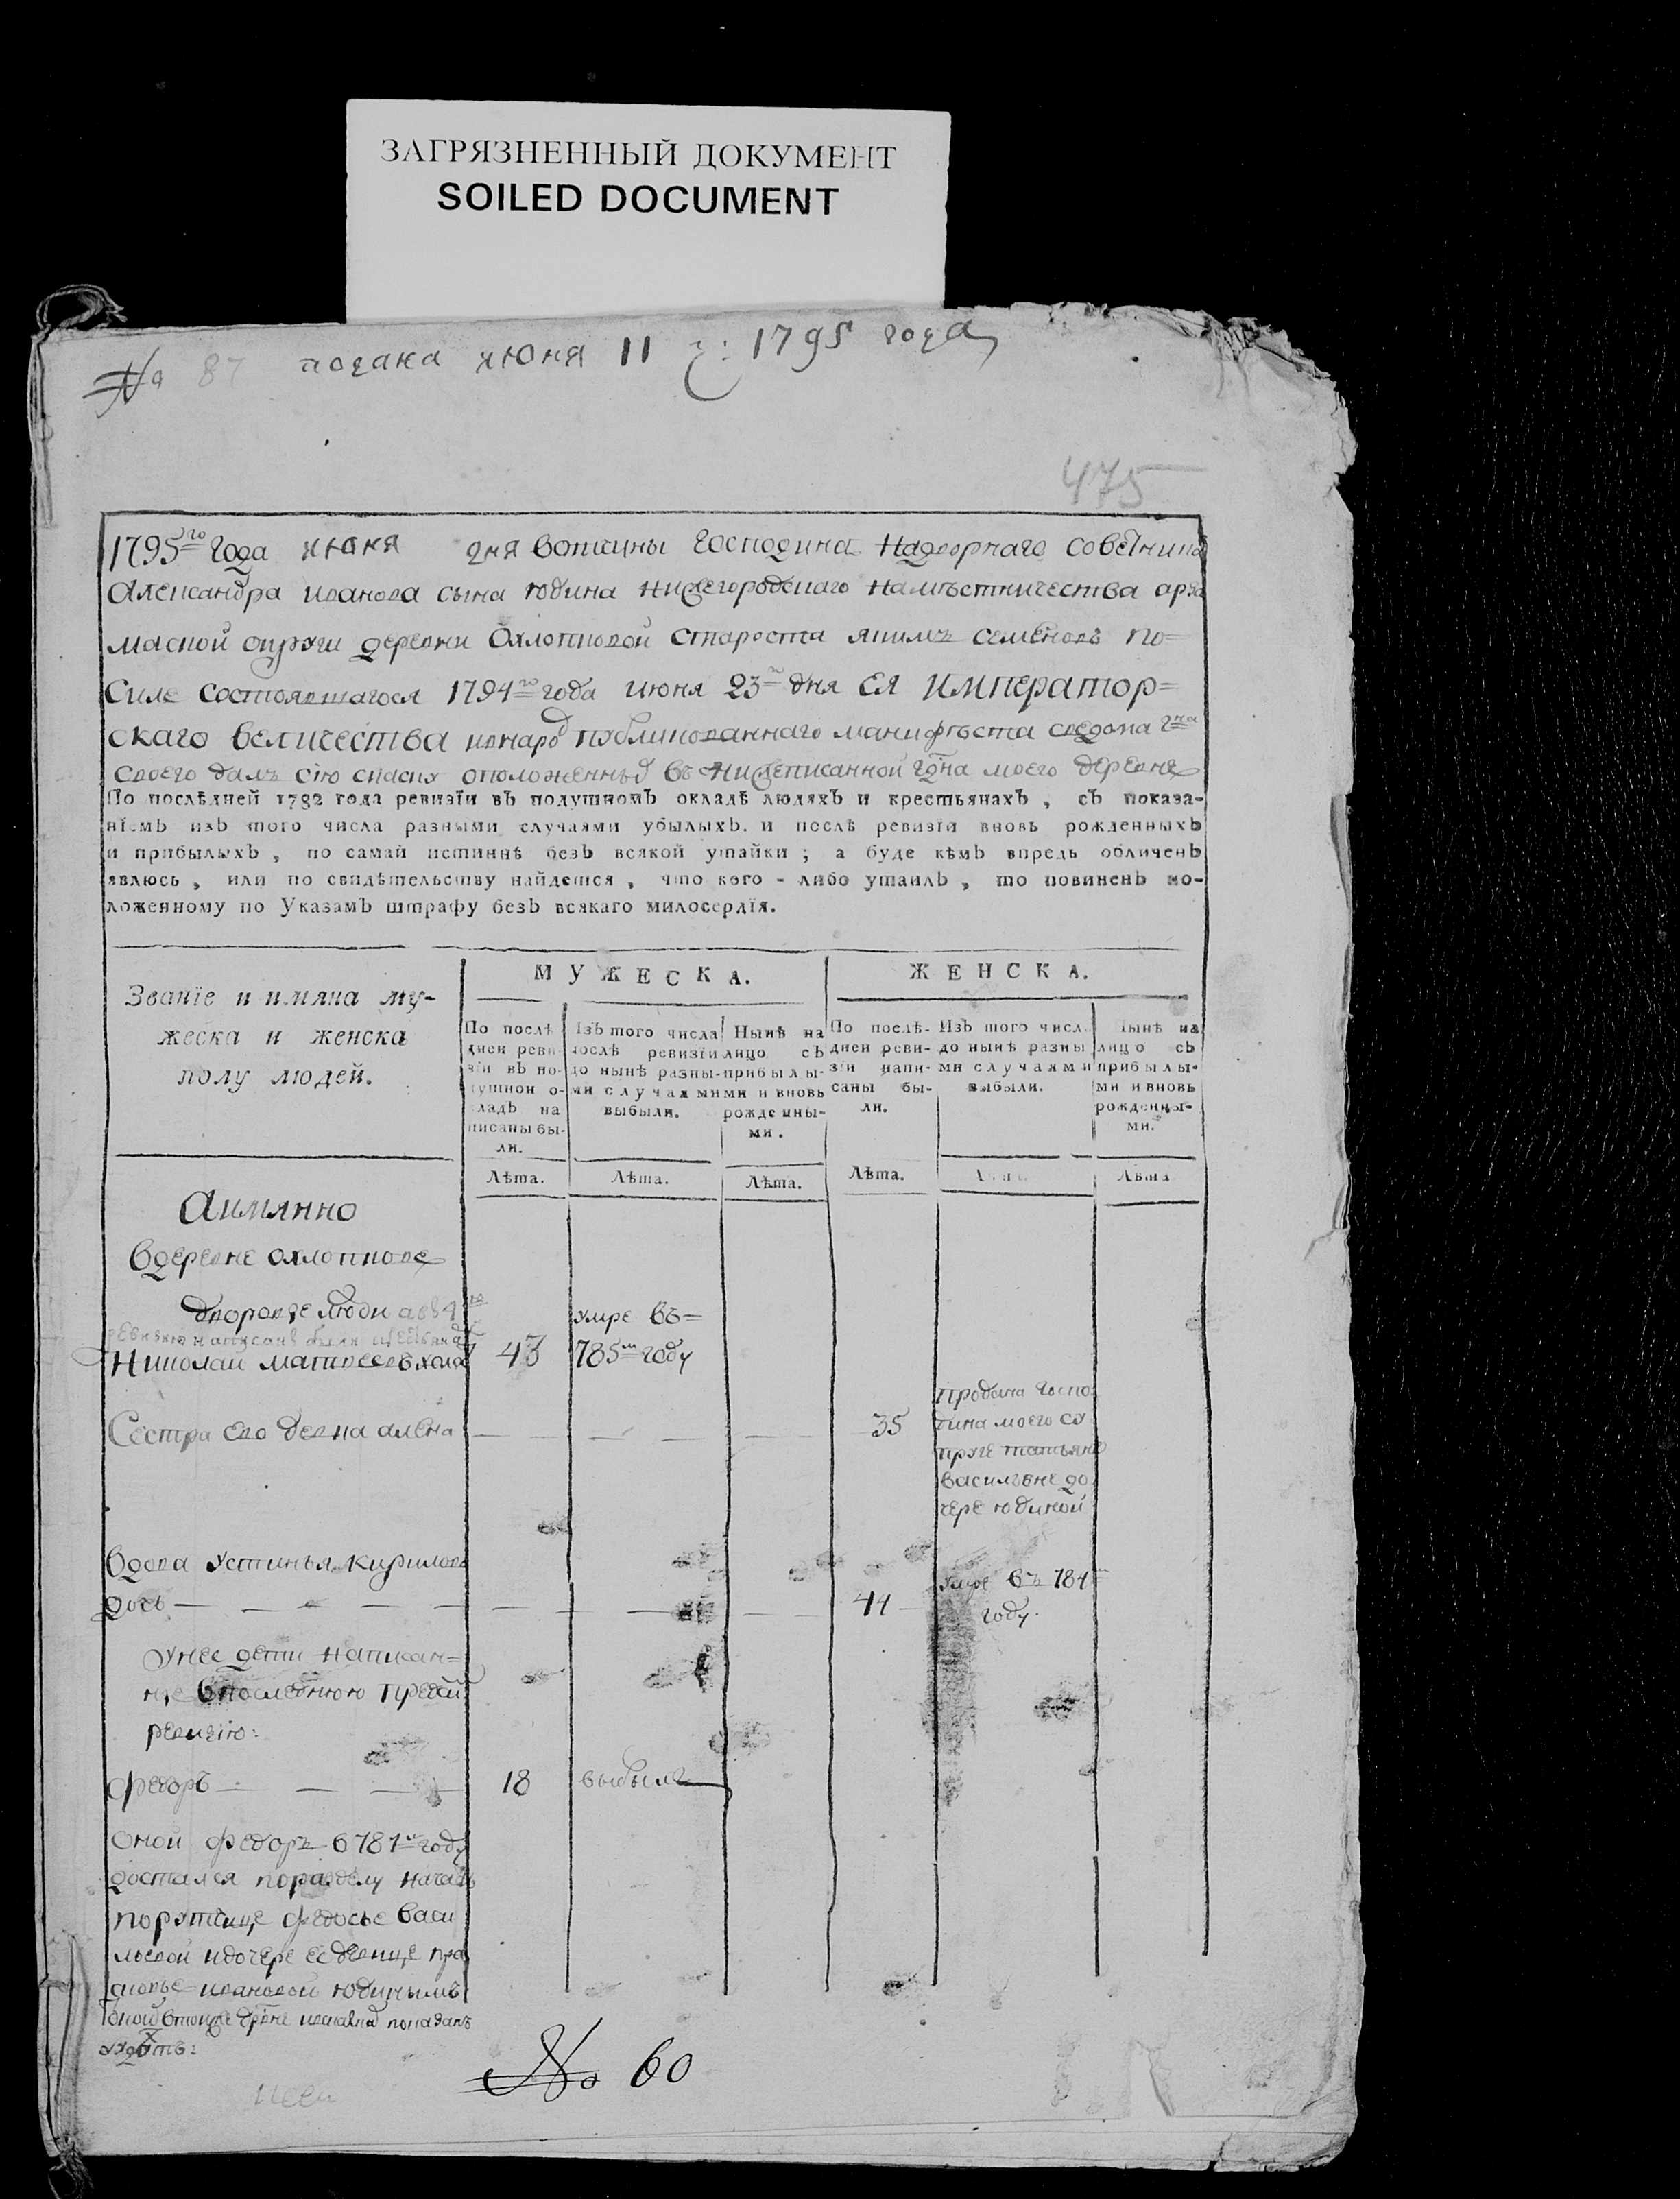 ЗАГРЯЗНЕННЫЙ ДОКУМЕНТ
SOILED DOCUMENT
№ 87 подана июня 11 ч: 1795 года
475
1795го года июня дня вотчины господина надворнаго советника
Александра иванова сына юдина нижегородскаго наместничества арза
маской округи деревни Охлопковой староста якимъ семеновъ по=
Силе состоявшагося 1794го года июня 23го дня Ея император=
скаго величества ивнарод публикованнаго манифеста сведома гдна
своего далъ сию скаску оположенныхъ въ нижеписанной гдна моего деревне
По послѣдней 1782 года ревизїи въ подушномъ окладѣ людяхъ и крестьянахъ, съ показа-
нїемъ изъ того числа разными случаями убылыхъ. и послѣ ревизїи вновь рожденныхъ
и прибылыхъ, по самай истиннѣ безъ всякой утайки; а буде кѣмъ впредь обличенъ
явлюсь, или по свидѣтельству найдется, что кого-либо утаилъ, то повиненъ по-
ложенному по Указамъ штрафу безъ всякаго милосердїя.
МУЖЕСКА.
ЖЕНСКА.
Званїе и имяна му-
жеска и женска
полу людей.
По послѣ
дней реви-
зїи въ по-
душной о-
кладъ на
писаны бы-
ли.
Изъ того числа
послѣ ревизїи
до нынѣ разны-
ми случаями
выбыли.
Нынѣ на
лицо съ
прибылы-
ми и вновь
рожденны-
ми.
По послѣ-
дней реви-
зїи напи-
саны бы-
ли.
Изъ того числа
до нынѣ разны
ми случаями
выбыли.
Нынѣ на
лицо съ
прибылы-
ми и вновь
рожденны-
ми.
Лѣта.
Лѣта.
Лѣта.
Лѣта.
Лѣта.
Лѣта.
Аимянно
Вдеревне охлопкове
дворовые люди
умре въ=
Николаи матвеевъ 43 785м году
Сестра ево девка алена 35
продана госпо
дина моего су
пруге татьяне
васильвне до
чере юдиной
Вдова устинья кирилова
дочь 44
умре въ 784м
году.
унее дети написан=
ные впоследнюю пред
ревизию:
Федоръ 18 выбылъ
Оной Федоръ в 787м году
достался поразделу
порутчице федосье васи
льевой идочере ее девице пра
сковье ивановой юдинымъ
№ 60